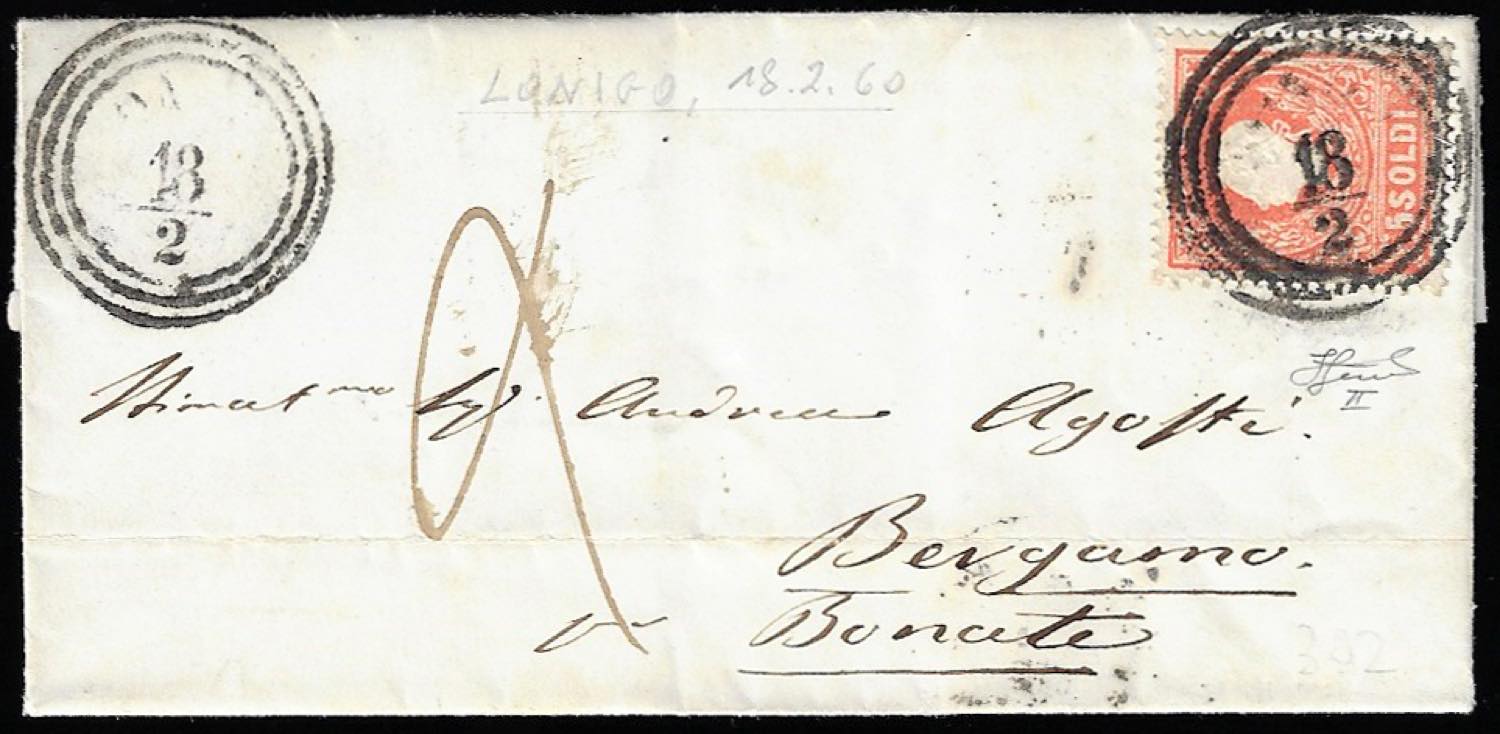 LONIGO, 18.2.60
18
2
18
2
5 SOLDI
Stimatmo Sigr. Andrea Agosti.
Bergamo.
pr Bonate
II
392